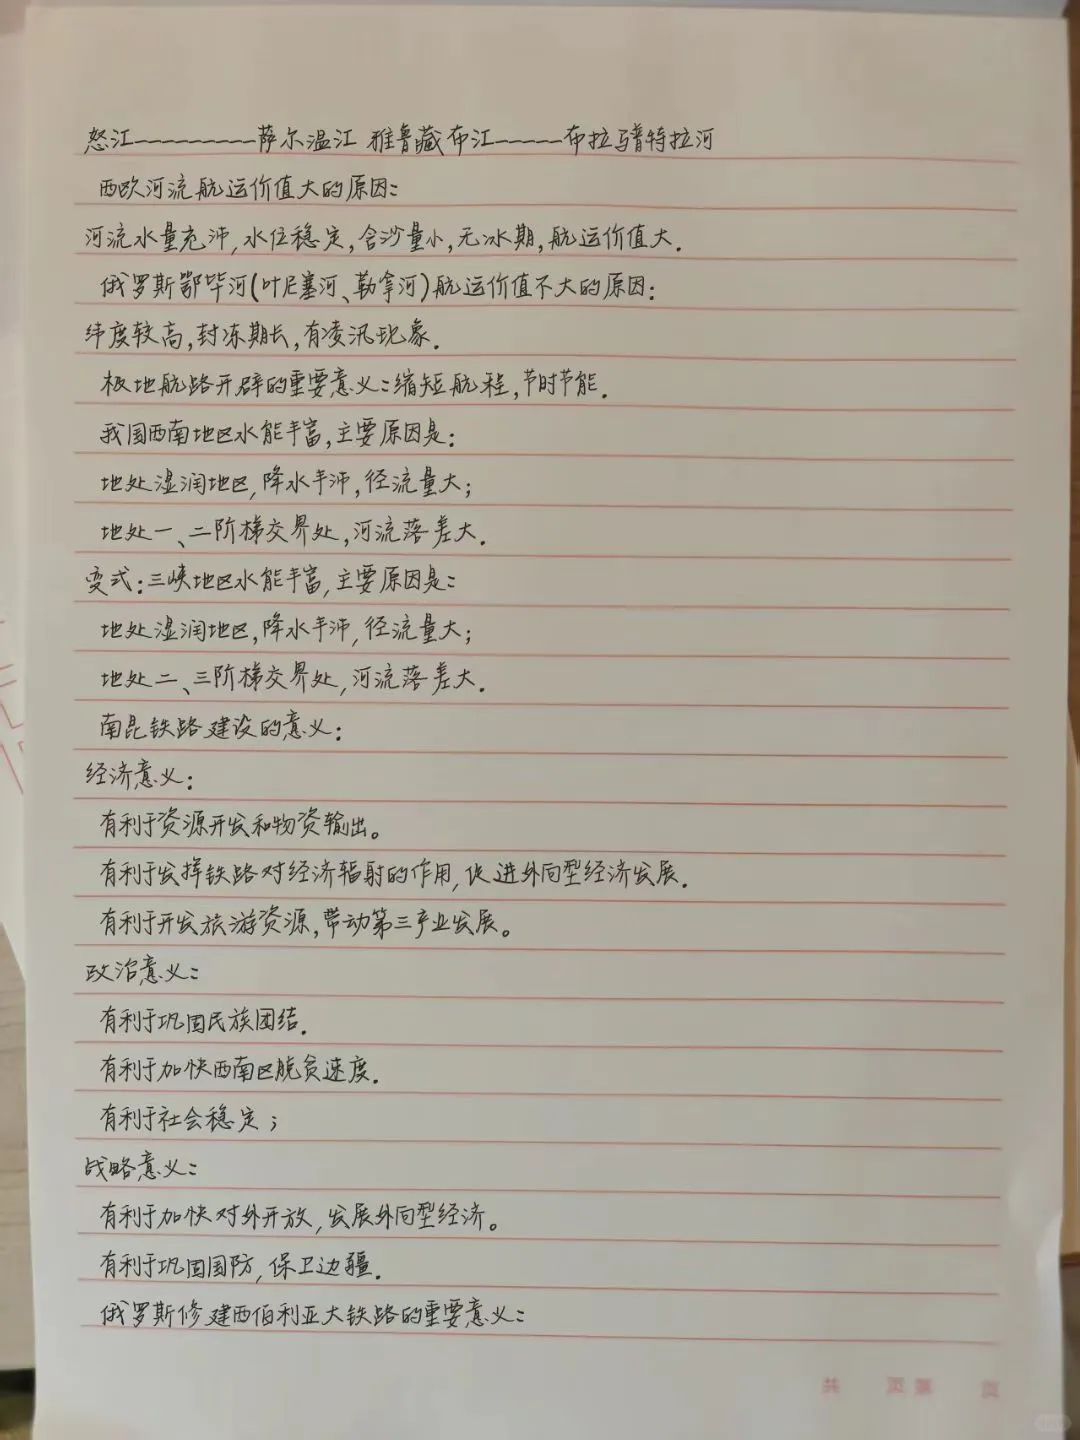 怒江---------萨尔温江 雅鲁藏布江-----布拉马普特拉河
西欧河流航运价值大的原因:
河流水量充沛,水位稳定,含沙量小,无冰期,航运价值大.
俄罗斯鄂毕河(叶尼塞河、勒拿河)航运价值不大的原因:
纬度较高,封冻期长,有凌汛现象.
极地航路开辟的重要意义:缩短航程,节时节能.
我国西南地区水能丰富,主要原因是:
地处湿润地区,降水丰沛,径流量大;
地处一、二阶梯交界处,河流落差大.
变式:三峡地区水能丰富,主要原因是:
地处湿润地区,降水丰沛,径流量大;
地处二、三阶梯交界处,河流落差大.
南昆铁路建设的意义:
经济意义:
有利于资源开发和物资输出。
有利于发挥铁路对经济辐射的作用,促进外向型经济发展.
有利于开发旅游资源,带动第三产业发展。
政治意义:
有利于巩固民族团结.
有利于加快西南区脱贫速度.
有利于社会稳定;
战略意义:
有利于加快对外开放,发展外向型经济。
有利于巩固国防,保卫边疆.
俄罗斯修建西伯利亚大铁路的重要意义:
共 页 第 页